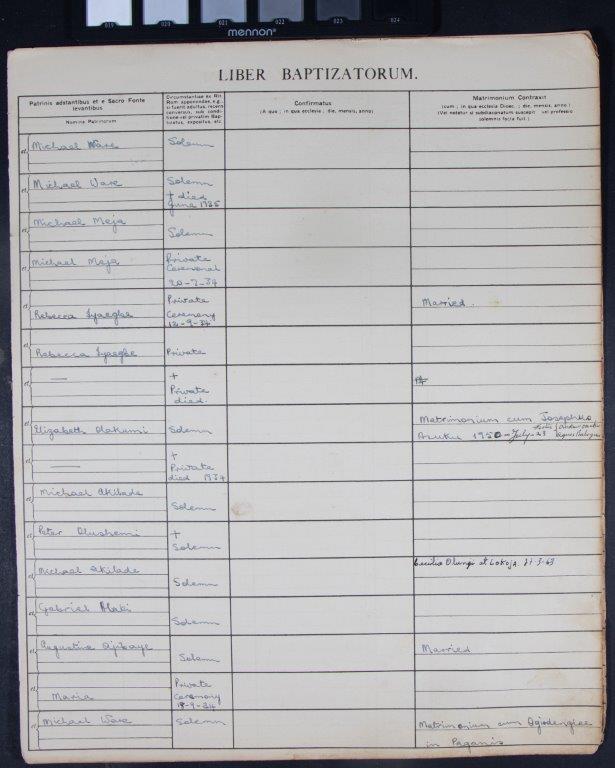 019 020 021 022 023 024
mennon
LIBER BAPTIZATORUM.
Patrinis adstantibus et e Sacro Fonte
levantibus
Nomina Patrinorum
Circumstantiae ex Rit.
Rom. appenendae, e.g.,
si fuerit adultus, recens
conversus, sub condi-
tione vel privatim Bap-
tizatus, expositus, etc.
Confirmatus
(A quo ; in qua ecclesia ; die, mensis, anno)
Matrimonium Contraxit
(cum ; in qua ecclesia Dioec. ; die, mensis, anno.)
(Vel notetur si subdiaconatum suscepit vel professio
solemnis facta fuit.)
et Michael Ware Solemn
et Michael Ware Solemn
+ died
June 1935
et Michael Meja
Solemn
et Michael Meja Private
Ceremonal
20-2-34
Private
et Rebecca Iyaegbe Ceremony
12-9-34
Married.
et Rebecca Iyaegbe Private
et — +
Private
died.
et Elizabeth Olakumi Solemn
Matrimonium cum Josephus
Azukus 1950 - July - 23
et — +
Private
died 1934
et Michael Akilade
Solemn
et Peter Olushemi +
Solemn
et Michael Akilade
Solemn
Cecilia Olungi at Lokoja 21-3-63
et Gabriel Alabi
Solemn
et Augustine Ajibaye
Solemn
Married
et Maria Private
Ceremony
18-9-34
et Michael Ware Solemn
Matrimonium cum
in Paganis